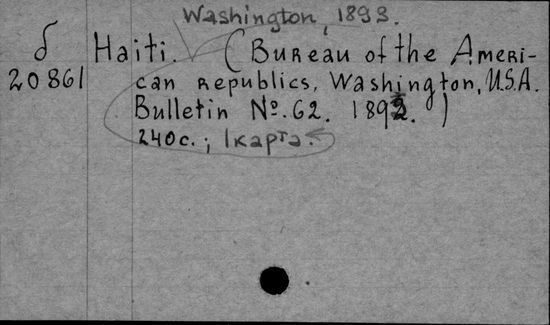 Washington, 1893.
б Haiti. (Bureau of the Ameri-
20861 can republics, Washington, U.S.A.
Bulletin №. 62. 1892.)
240с.; 1карта.